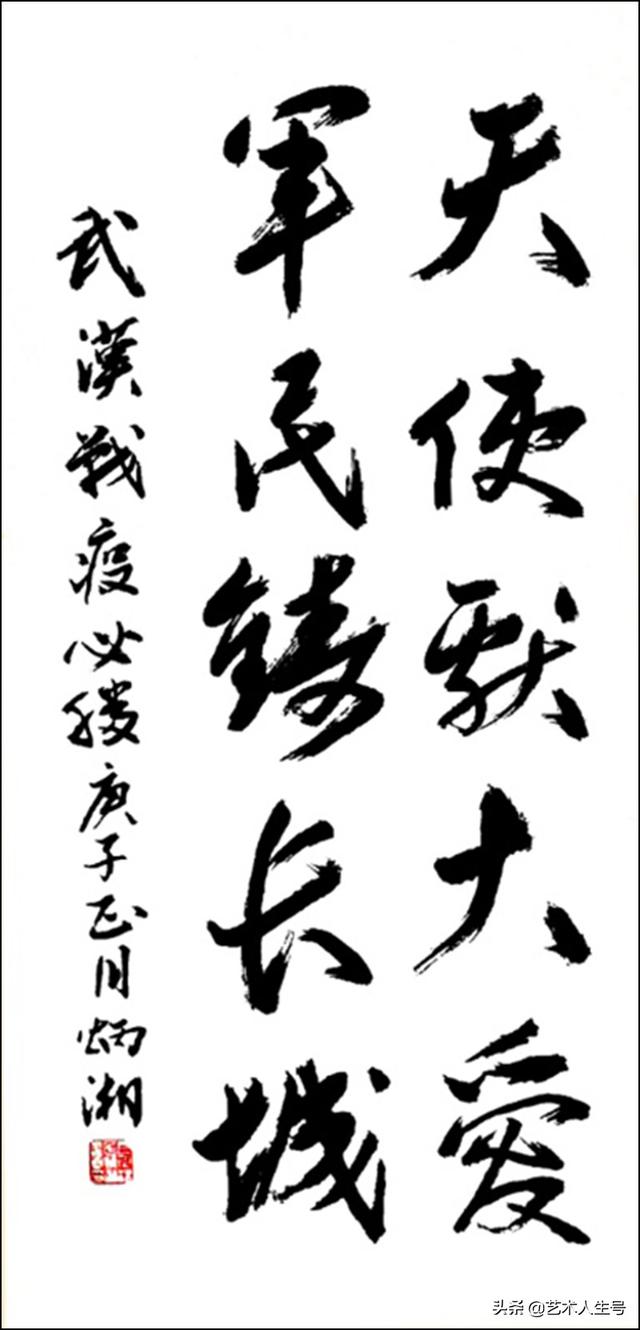 天使獻大愛
軍民鑄长城
武漢戰疫必勝庚子正月炳湘
头条 @艺术人生号